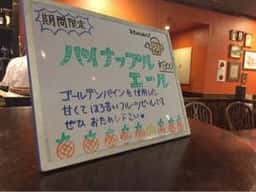 期間限定
パイナップル
エール
ゴールデンパインを使用した
甘くてほろ苦いフルーツビールです
ぜひおためし下さい